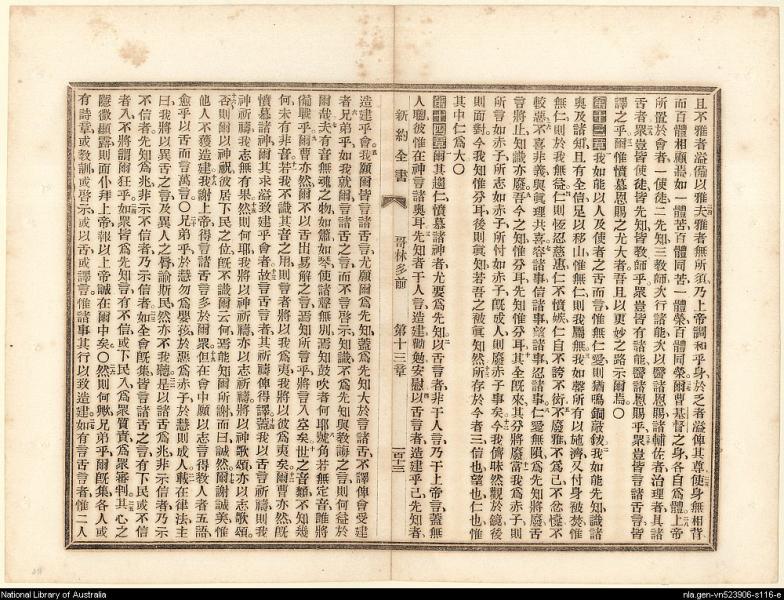 且不雅者溢備以雅夫雅者無所須乃上帝調和乎身於乏者溢俾其尊使身無相背
而百體相顧焉如一體苦百體同苦一體榮百體同榮爾曹基督之身各自爲體上帝
所置於會者一使徒二先知三敎師次行諸能次以醫諸恩賜諸輔佐者治理者具諸
舌者衆豈皆使徒皆先知皆敎師乎衆豈皆有諸能皆有醫諸恩賜乎衆豈皆言諸舌言皆
譯之乎爾惟憤慕恩賜之尤大者吾且以更妙之路示爾焉〇
第十三章我如能以人及使者之舌而言惟無仁愛則猶鳴銅敲鈸我如能先知識諸
奧及諸知且有全信足以移山惟無仁則我屬無我如罄所有以施濟又付身被焚惟
無仁則於我無益仁則恆忍慈惠仁不憤嫉仁自不誇不衒不廢雅不爲己不忿懥不
較惡不喜非義與眞理共喜容諸事信諸事望諸事忍諸事仁愛無隕爲先知將廢舌
言將止知識亦廢吾今之知惟分耳先知惟分耳其全旣來其分將廢當我爲赤子則
所言如赤子所志如赤子所忖如赤子旣成人則廢赤子事矣今我儕昧然觀於鏡後
則面對今我知惟分耳後則眞知若吾之被眞知然所存於今者三信也望也仁也惟
其中仁爲大〇
第十四章爾其趨仁憤慕諸神者尤要爲先知以舌言者非于人言乃于上帝言蓋無
人聽彼惟在神言諸奧耳先知者于人言造建勸勉安慰以舌言者造建乎己先知者
新約全書 哥林多前 第十三章 一百十三
造建乎會我願爾皆言諸舌言尤願爾爲先知蓋爲先知大於言諸舌不譯俾會受建
者兄弟乎如我就爾言諸舌之言而不言啓示知識不爲先知與敎誨之言則何益於
爾哉夫有音無魂之物如簫如琴使諸聲無別焉知鼓吹者何耶號角若無定音誰將
備戰乎爾曹亦然爾不以舌出易解之言焉知所言乎將言入空矣世之音類不知幾
何未有非音若我不識其音之用則言者將以我爲夷我將以彼爲夷矣爾曹亦然旣
憤慕諸神爾其求溢致建乎會者故言舌言者其祈禱俾得譯蓋我以舌言祈禱則我
神祈禱我志無有果然則何耶我將以神祈禱亦以志祈禱將以神歌頌亦以志歌頌
否則爾以神祝彼居下民之位旣不識爾云何焉能知爾所謝而曰誠然爾謝誠美惟
他人不獲造建我謝上帝得言諸舌言多於爾衆但在會中願以志言得敎人者五語
愈乎以舌而言萬言〇兄弟乎於慧勿爲嬰孩於惡爲赤子於慧則成人載在律法主
曰我將以異舌之言及異人之脣諭斯民然亦不我聽是以諸舌爲兆非示信者乃示
不信者先知爲兆非示不信者乃示信者如全會旣集皆言諸舌之言有下民或不信
者入不將謂爾狂乎如衆皆爲先知言有不信或下民入爲衆質責爲衆審判其心之
隱微顯露則而仆拜上帝報以上帝誠在爾中矣〇然則何歟兄弟乎爾旣集各人或
有詩章或敎訓或啓示或以舌或譯言惟諸事其行以致造建如有言舌言者惟二人
National Library of Australia
nla.gen-vn523906-s116-e